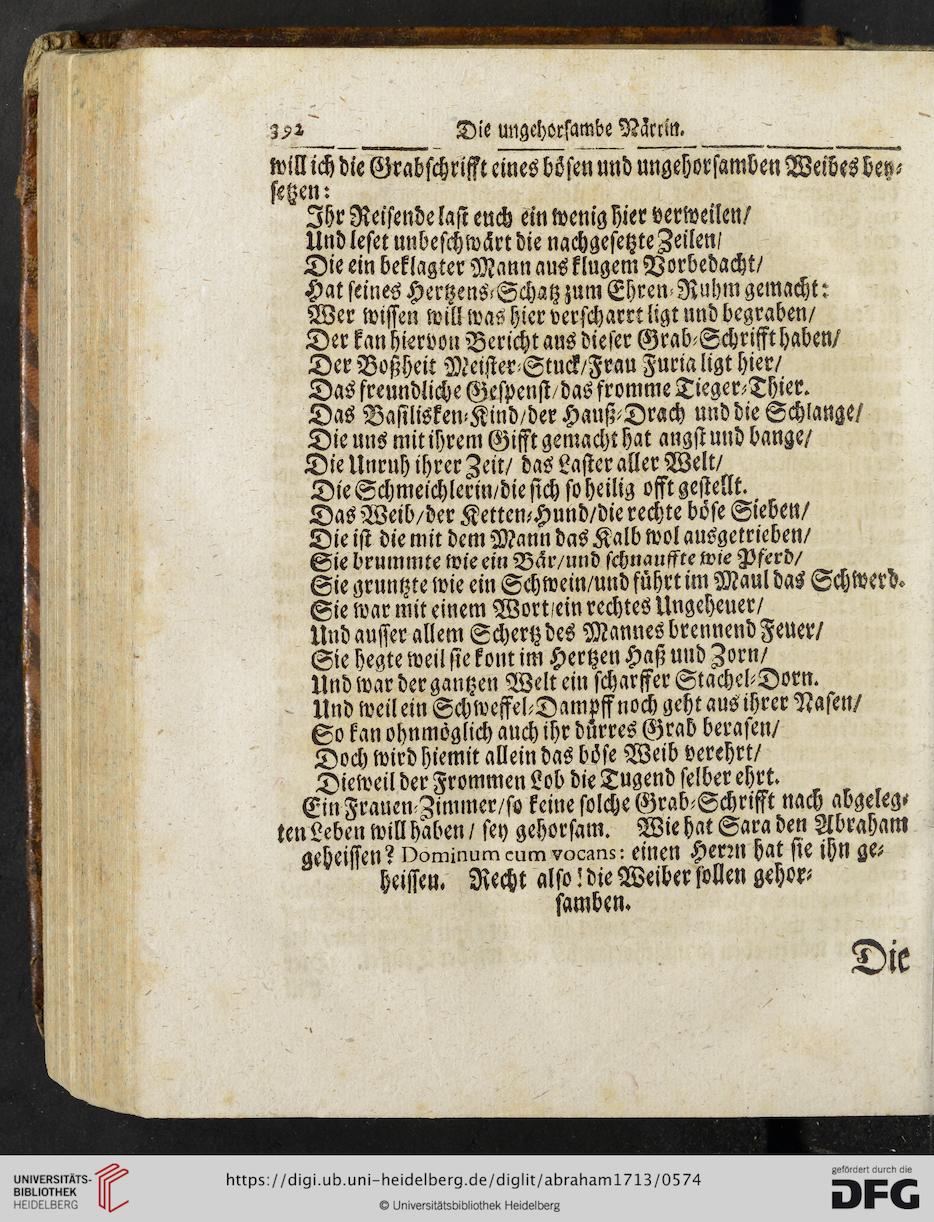 392 Die ungehorsambe Närrin.
will ich die Grabschrifft eines bösen und ungehorsamben Weibes bey-
setzen:
Ihr Reisende last euch ein wenig hier verweilen/
Und leset unbeschwärt die nachgesetzte Zeilen/
Die ein beklagter Mann aus klugem Vorbedacht/
Hat seines Hertzens-Schatz zum Ehren-Ruhm gemacht:
Wer wissen will was hier verscharrt ligt und begraben/
Der kan hiervon Bericht aus dieser Grab-Schrifft haben/
Der Boßheit Meister-Stuck/Frau Furia ligt hier/
Das freundliche Gespenst/das fromme Tieger-Thier.
Das Basilisken-Kind/der Hauß-Drach und die Schlange/
Die uns mit ihrem Gifft gemacht hat angst und bange/
Die Unruh ihrer Zeit/ das Laster aller Welt/
Die Schmeichlerin/die sich so heilig offt gestellt.
Das Weib/der Ketten-Hund/die rechte böse Sieben/
Die ist die mit dem Mann das Kalb wol ausgetrieben/
Sie brummte wie ein Bär/und schnauffte wie Pferd/
Sie gruntzte wie ein Schwein/und führt im Maul das Schwerd.
Sie war mit einem Wort/ein rechtes Ungeheuer/
Und ausser allem Schertz des Mannes brennend Feuer/
Sie hegte weil sie kont im Hertzen Haß und Zorn/
Und war der gantzen Welt ein scharffer Stachel-Dorn.
Und weil ein Schweffel-Dampff noch geht aus ihrer Nasen/
So kan ohnmöglich auch ihr dürres Grab berasen/
Doch wird hiemit allein das böse Weib verehrt/
Dieweil der Frommen Lob die Tugend selber ehrt.
Ein Frauen-Zimmer/so keine solche Grab-Schrifft nach abgeleg-
ten Leben will haben/ sey gehorsam. Wie hat Sara den Abraham
geheissen? Dominum eum vocans: einen Herrn hat sie ihn ge-
heissen. Recht also! die Weiber sollen gehor-
samben.
Die
UNIVERSITÄTS-
BIBLIOTHEK
HEIDELBERG
https://digi.ub.uni-heidelberg.de/diglit/abraham1713/0574
© Universitätsbibliothek Heidelberg
gefördert durch die
DFG